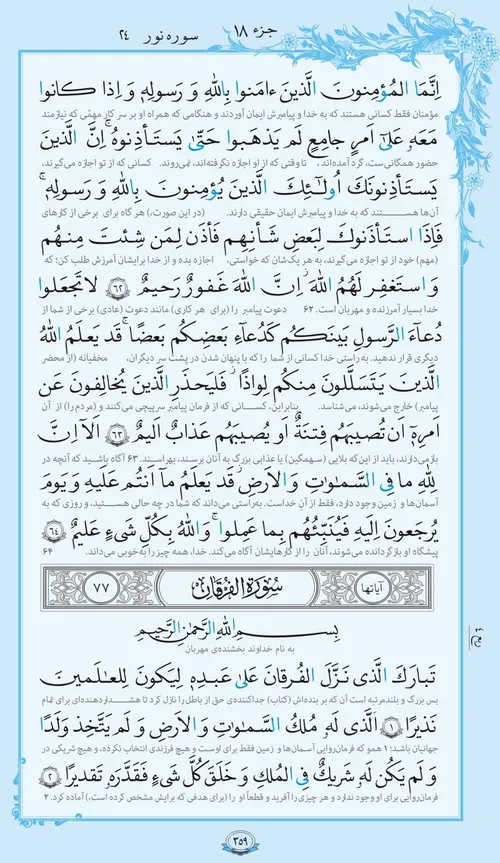 جزء ۱۸
سوره نور ۲۴
اِنَّمَا المُؤمِنونَ الَّذينَ ءامَنوا بِاللهِ وَ رَسولِه وَ اِذا كانوا
مؤمنان فقط کسانی هستند که به خدا و پیامبرش ایمان آوردند و هنگامی که همراه او بر سر کار مهمّی که نیازمند
مَعَه عَلىٰ اَمرٍ جامِعٍ لَم يَذهَبوا حَتّىٰ يَستَأذِنوهُ ۚ اِنَّ الَّذينَ
حضور همگانی‌ست، گرد آمده‌اند، تا وقتی که از او اجازه نگرفته‌اند، نمی‌روند. کسانی که از تو اجازه می‌گیرند،
يَستَأذِنونَكَ اُولٰـئِكَ الَّذينَ يُؤمِنونَ بِاللهِ وَ رَسولِه ۚ
آن‌ها هستند که به خدا و پیامبرش ایمان حقیقی دارند. (در این صورت،) هر گاه برای برخی از کارهای
فَاِذَا استَأذَنوكَ لِبَعضِ شَأنِهِم فَأذَن لِمَن شِئتَ مِنهُم
(مهم) خود از تو اجازه می‌گیرند، به هر یک‌شان که خواستی، اجازه بده و از خدا برایشان آمرزش طلب کن؛ که
وَ استَغفِر لَهُمُ اللهَ ۚ اِنَّ اللهَ غَفورٌ رَحيمٌ ﴿۶۲﴾ لا تَجعَلوا
خدا بسیار آمرزنده و مهربان است. ۶۲ دعوت پیامبر را (برای هر کاری) مانند دعوت (عادی) برخی از شما از
دُعاءَ الرَّسولِ بَينَكُم كَدُعاءِ بَعضِكُم بَعضًا ۚ قَد يَعلَمُ اللهُ
دیگری قرار ندهید. به راستی خدا کسانی از شما را که با پنهان شدن در پشت سر دیگران، مخفیانه (از محضر
الَّذينَ يَتَسَلَّلونَ مِنكُم لِواذًا ۚ فَليَحذَرِ الَّذينَ يُخالِفونَ عَن
پیامبر) خارج می‌شوند، می‌شناسد. بنابراین، کسانی که از فرمان پیامبر سرپیچی می‌کنند و (مردم را) از آن
اَمرِه اَن تُصيبَهُم فِتنَةٌ اَو يُصيبَهُم عَذابٌ اَليمٌ ﴿۶۳﴾ اَلا اِنَّ
باز می‌دارند، باید از این‌که بلایی (سهمگین) یا عذابی بزرگ به آنان برسند، بهراسند. ۶۳ آگاه باشید که آنچه در
لِلّٰهِ ما فِى السَّمٰوٰتِ وَ الاَرضِ ۖ قَد يَعلَمُ ما اَنتُم عَلَيهِ وَ يَومَ
آسمان‌ها و زمین وجود دارد، فقط از آنِ خداست. به‌راستی می‌داند که شما در چه حالی هستید، و روزی که به
يُرجَعونَ اِلَيهِ فَيُنَبِّئُهُم بِما عَمِلوا ۗ وَ اللهُ بِكُلِّ شَىءٍ عَليمٌ ﴿۶۴﴾
پیشگاه او بازگردانده می‌شوند، آنان را از کارهایشان آگاه می‌کند. خدا، همه چیز را به‌خوبی می‌داند. ۶۴
آیاتها سُورَةُ الفُرقان ۷۷
بِسمِ اللهِ الرَّحمٰنِ الرَّحيمِ
به نام خداوند بخشنده‌ی مهربان
تَبارَكَ الَّذى نَزَّلَ الفُرقانَ عَلىٰ عَبدِه لِيَكونَ لِلعٰلَمينَ
بس بزرگ و بلندمرتبه است آن که بر بنده‌اش (کتاب) جداکننده‌ی حق از باطل را نازل کرد تا هشداردهنده‌ای برای تمام
نَذيرًا ﴿۱﴾ اَلَّذى لَه مُلكُ السَّمٰوٰتِ وَ الاَرضِ وَ لَم يَتَّخِذ وَلَدًا
جهانیان باشد؛ ۱ همو که فرمان‌روایی آسمان‌ها و زمین فقط برای اوست و هیچ فرزندی انتخاب نکرده، و هیچ شریکی در
وَ لَم يَكُن لَه شَريكٌ فِى المُلكِ وَ خَلَقَ كُلَّ شَىءٍ فَقَدَّرَه تَقديرًا ﴿۲﴾
فرمان‌روایی برای او وجود ندارد و هر چیزی را آفرید و قطعاً او را (برای هدفی که برایش مشخص کرده است،) آماده کرد. ۲
۳۵۹